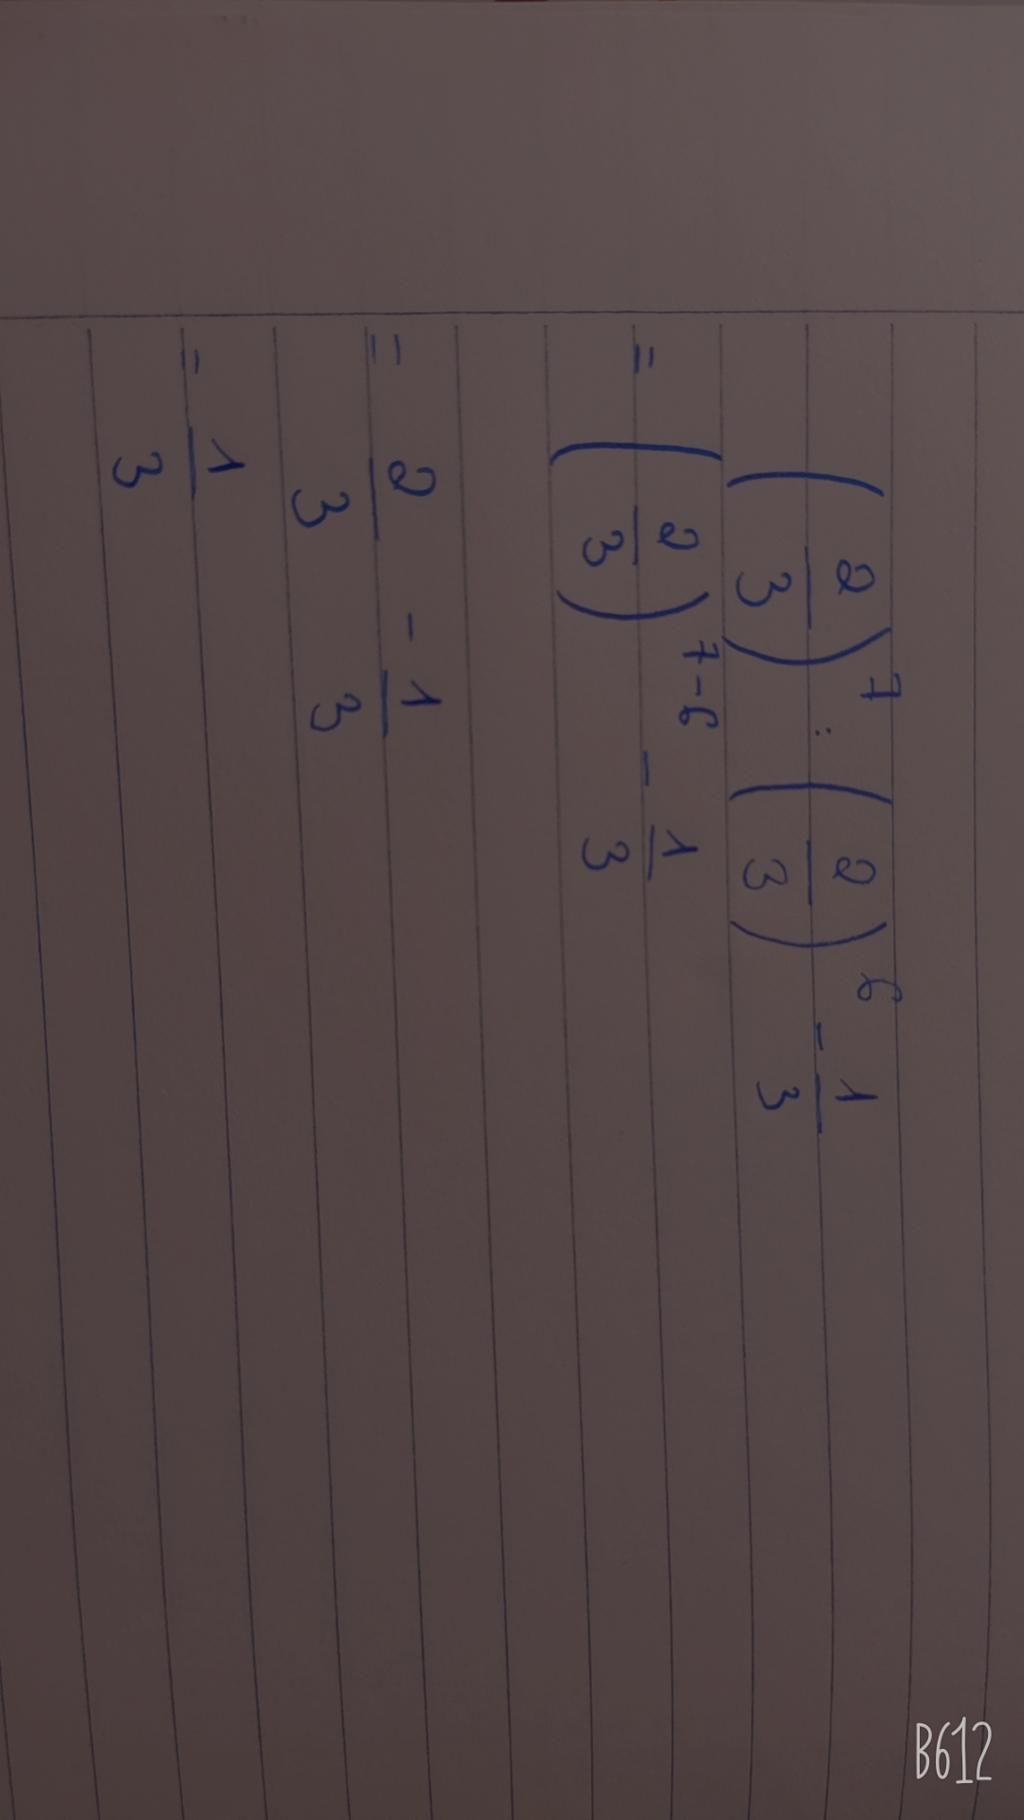 (2/3)^7 : (2/3)^6 - 1/3
= (2/3)^7-6 - 1/3
= 2/3 - 1/3
= 1/3
B612